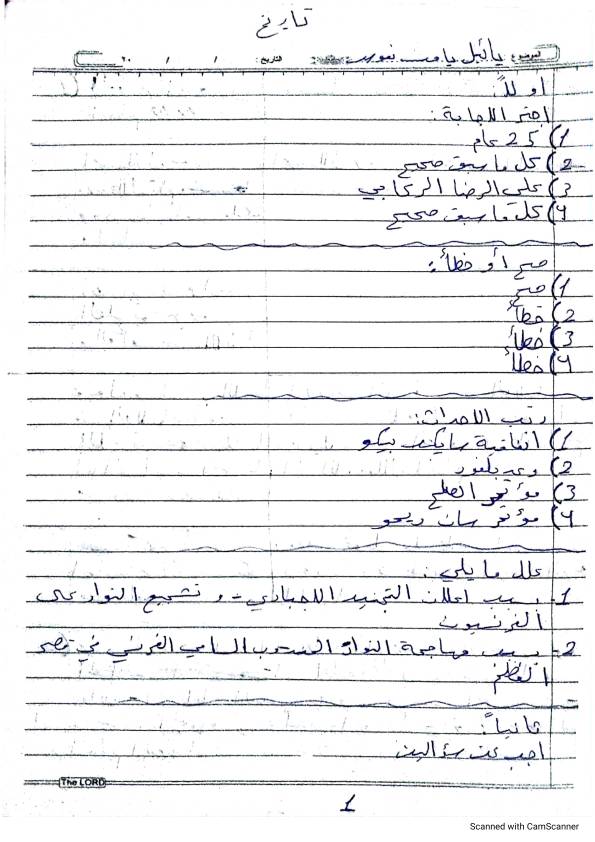 تاريخ
الموضوع: التاريخ: / / ٢٠
أولاً:
اختر الاجابة:
1) 25 عام
2) كل ما سبق صحيح
3) علي الرضا الركابي
4) كل ما سبق صحيح
صح أو خطأ:
1) صح
2) خطأ
3) خطأ
4) خطأ
رتب الاحداث:
1) اتفاقية سايكس بيكو
2) وعد بلفور
3) مؤتمر الصلح
4) مؤتمر سان ريمو
علل ما يلي:
1- بسبب اعلان التجنيد الاجباري - و تشجيع الثوار على
الفرنسيون
2- بسبب مهاجمة الثوار المندوب السامي الفرنسي في قصر
العظم
ثانياً:
اجب عن سؤالين
The LORD
1
Scanned with CamScanner